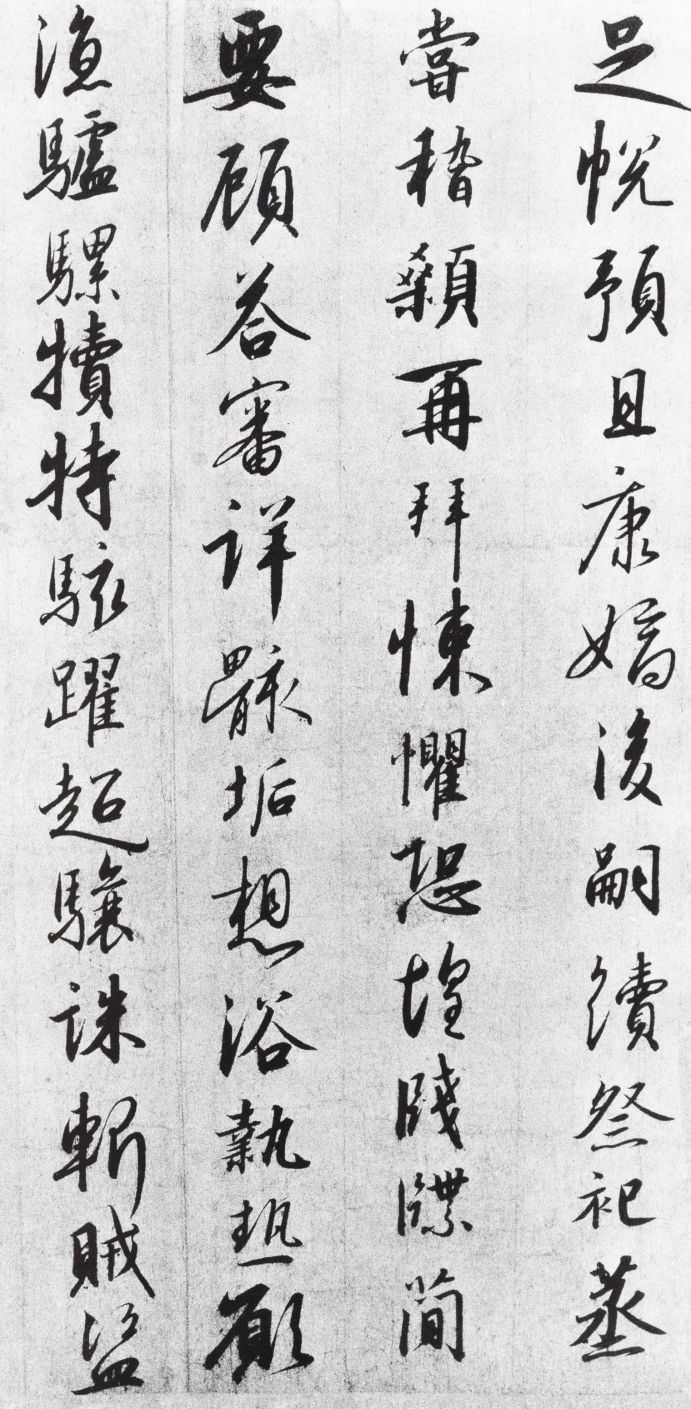 足悅預且康嫡後嗣續祭祀蒸
嘗稽顙再拜悚懼恐惶牋牒簡
要顧答審詳骸垢想浴執熱願
涼驢騾犢特駭躍超驤誅斬賊盜